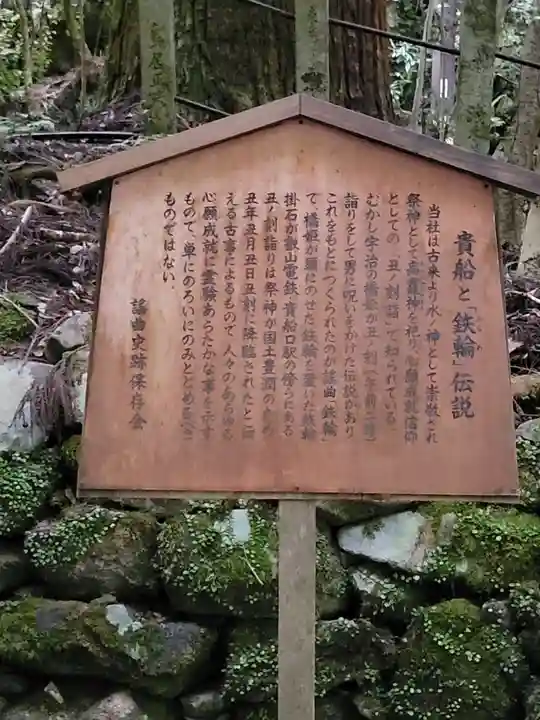 貴船と「鉄輪」伝説
当社は古来より水ノ神として崇敬され
祭神として高龗神を祀り、心願成就信仰
としての「丑ノ刻詣」で知られている。
むかし宇治の橋姫が丑ノ刻(午前二時)
詣りをして男に呪いをかけた伝説があり
これをもとにつくられたのが謡曲「鉄輪」
で、橋姫が頭にのせた鉄輪を置いた鉄輪
掛石が叡山電鉄・貴船口駅の傍らにある
丑ノ刻詣りは祭神が国土豊潤のため
丑年丑月丑日丑刻に降臨されたと
える古事によるもので、人々のあらゆる
心願成就に霊験あらたかな事を示す
もので、単にのろいにのみとどめるべき
ものではない。
謡曲史跡保存会